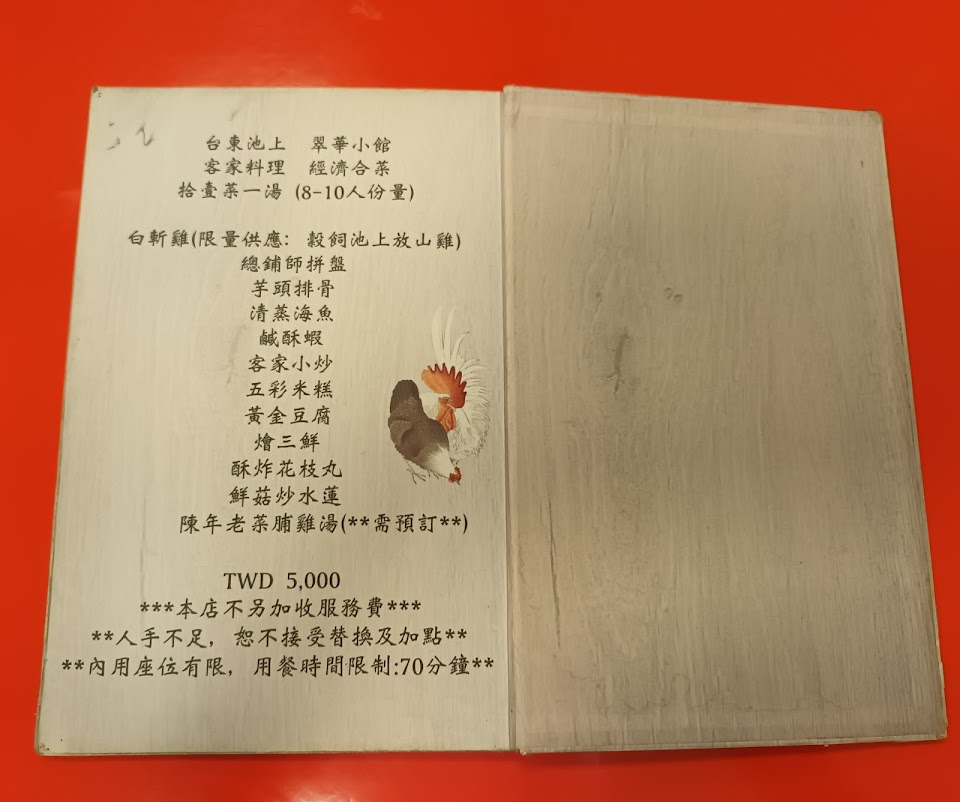 台東池上　翠華小館
客家料理　經濟合菜
拾壹菜一湯 (8-10人份量)
白斬雞(限量供應: 穀飼池上放山雞)
總鋪師拼盤
芋頭排骨
清蒸海魚
鹹酥蝦
客家小炒
五彩米糕
黃金豆腐
燴三鮮
酥炸花枝丸
鮮菇炒水蓮
陳年老菜脯雞湯(**需預訂**)
TWD 5,000
***本店不另加收服務費***
**人手不足, 恕不接受替換及加點**
**內用座位有限, 用餐時間限制:70分鐘**